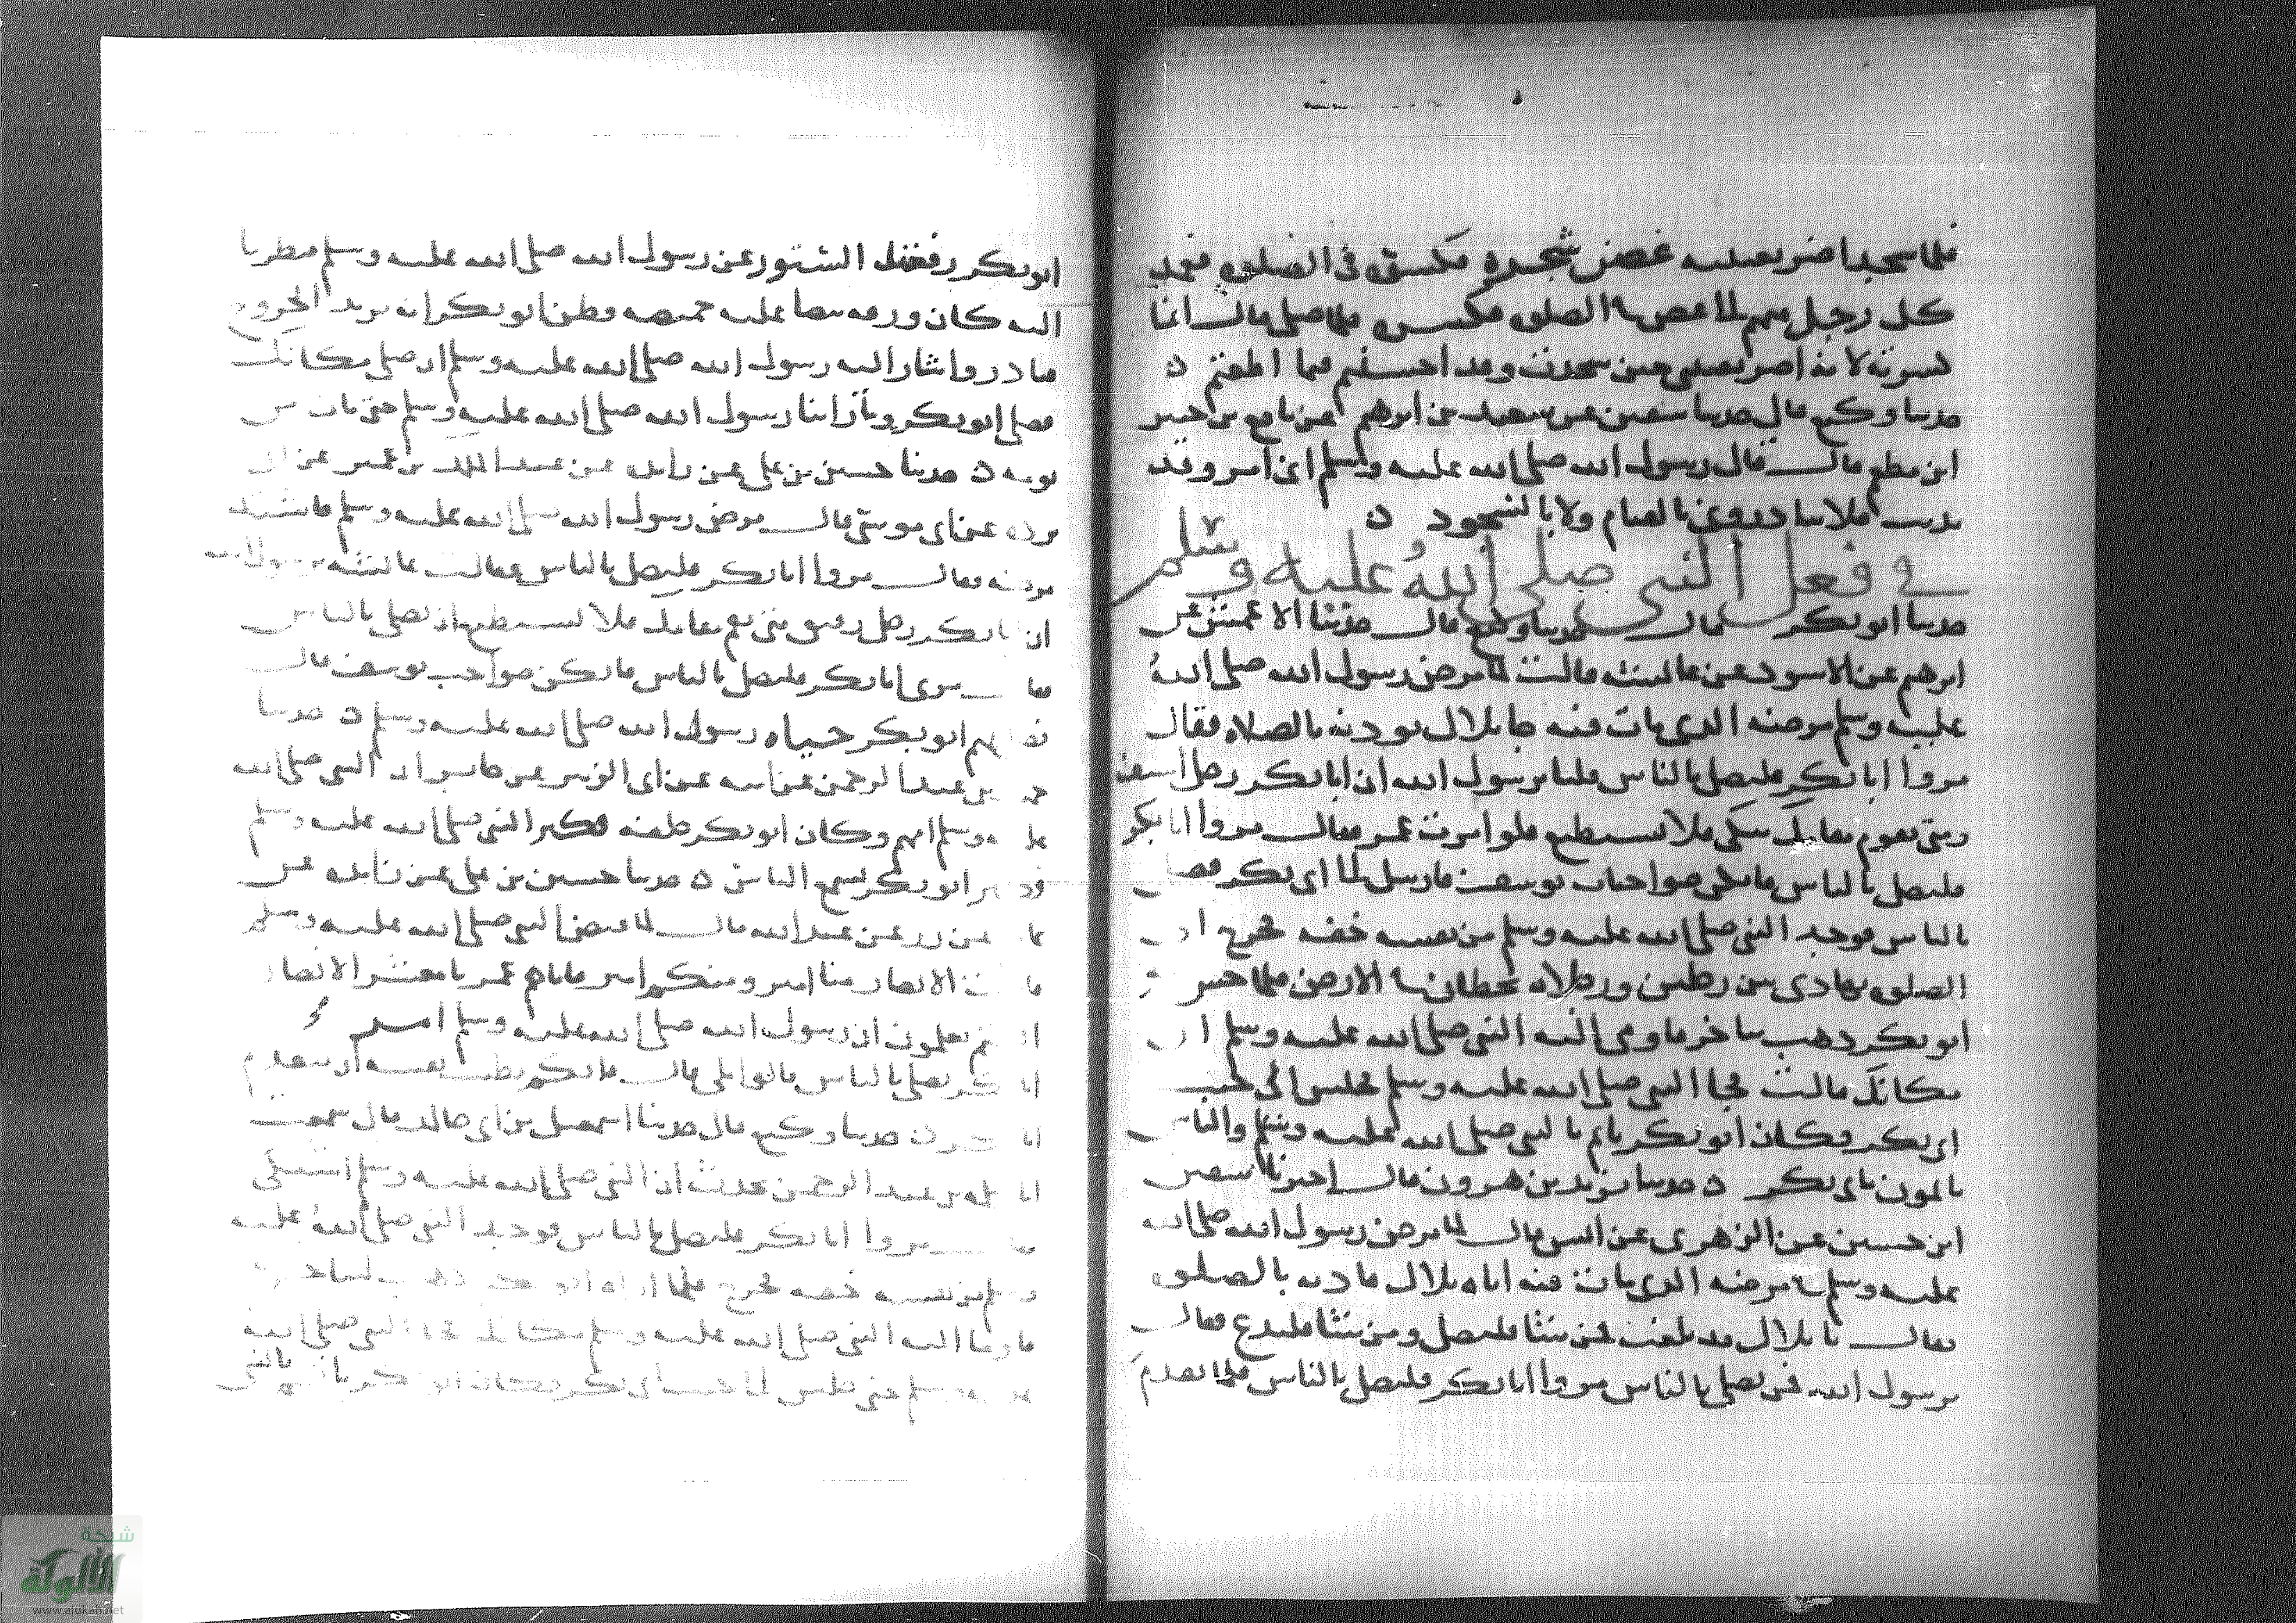 فلما سجد اضر بعينيه غصن شجرة فكسره في الصلوة فعمد
كل رجل منهم الى غصن في الصلوة فكسره فلما صلى قال انما
كسرته لانه اضر بعيني حين سجدت وقد احسنتم فيما اطعتم
حدثنا وكيع قال حدثنا سفين عن سعيد بن ابرهيم عن نافع بن جبير
ابن مطعم قال قال رسول الله صلى الله عليه وسلم اني امرو قد
بدنت فلا تبادروني بالقيام ولا بالسجود
في فعل النبي صلى الله عليه وسلم
حدثنا ابو بكر قال حدثنا وكيع قال حدثنا الاعمش عن
ابرهيم عن الاسود عن عائشة قالت لما مرض رسول الله صلى الله
عليه وسلم مرضه الذي مات فيه جا بلال يوذنه بالصلاه فقال
مروا ابا بكر فليصل بالناس قلنا يرسول الله ان ابا بكر رجل اسيف
ومتى يقوم مقامك يبكي فلا يستطيع فلو امرت عمر فقال مروا ابا بكر
فليصل بالناس فانكن صواحبات يوسف فارسل الى ابي بكر فصلى
بالناس فوجد النبي صلى الله عليه وسلم من نفسه خفه فخرج الى
الصلوة يهادى بين رجلين ورجلاه تخطان في الارض فلما حس
ابو بكر ذهب يتاخر فاومى اليه النبي صلى الله عليه وسلم ان
مكانك قالت فجا النبي صلى الله عليه وسلم فجلس الى جنب
ابي بكر فكان ابو بكر ياتم بالنبي صلى الله عليه وسلم والناس
ياتمون بابي بكر حدثنا يزيد بن هرون قال اخبرنا سفين
ابن حسين عن الزهري عن انس قال لما مرض رسول الله صلى الله
عليه وسلم مرضه الذي مات فيه اتاه بلال فاذنه بالصلوة
فقال يا بلال قد بلغت فمن شا فليصل ومن شا فليدع فقال
يرسول الله فمن يصلي بالناس مروا ابا بكر فليصل بالناس فلما تقدم
ابو بكر رفعت الستور عن رسول الله صلى الله عليه وسلم فنظرنا
اليه كانه ورقه بيضا عليه خميصه فظن ابو بكر انه يريد الخروج
فتاخر واشار اليه رسول الله صلى الله عليه وسلم ان صلي مكانك
فصلى ابو بكر وما راينا رسول الله صلى الله عليه وسلم حتى مات من
يومه حدثنا حسين بن علي عن زايده عن عبد الملك بن عمير عن ابي
برده عن ابي موسى قال مرض رسول الله صلى الله عليه وسلم فاشتد
مرضه فقال مروا ابا بكر فليصل بالناس فقالت عائشه يرسول الله
ان ابا بكر رجل رقيق متى يقم مقامك فلا يستطيع ان يصلي بالناس
فقال مري ابا بكر فليصل بالناس فانكن صواحب يوسف قال
فصلى بهم ابو بكر حياه رسول الله صلى الله عليه وسلم حدثنا
حميد بن عبد الرحمن عن ابيه عن ابي الزبير عن جابر ان النبي صلى الله
عليه وسلم امهم وكان ابو بكر خلفه فكبر النبي صلى الله عليه وسلم
وكبر ابو بكر يسمع الناس حدثنا حسين بن علي عن زايده عن
عاصم عن زر عن عبد الله قال لما قبض النبي صلى الله عليه وسلم
قالت الانصار منا امير ومنكم امير فاتاهم عمر يا معشر الانصار
الستم تعلمون ان رسول الله صلى الله عليه وسلم امر
ابا بكر يصلي بالناس قالوا بلى قال فايكم تطيب نفسه ان يتقدم
ابا بكر حدثنا وكيع قال حدثنا اسمعيل بن ابي خالد قال سمعت
ان النبي صلى الله عليه وسلم اشتكى
فقال مروا ابا بكر فليصل بالناس فوجد النبي صلى الله عليه
وسلم من نفسه خفه فخرج فلما
فاومى اليه النبي صلى الله عليه وسلم